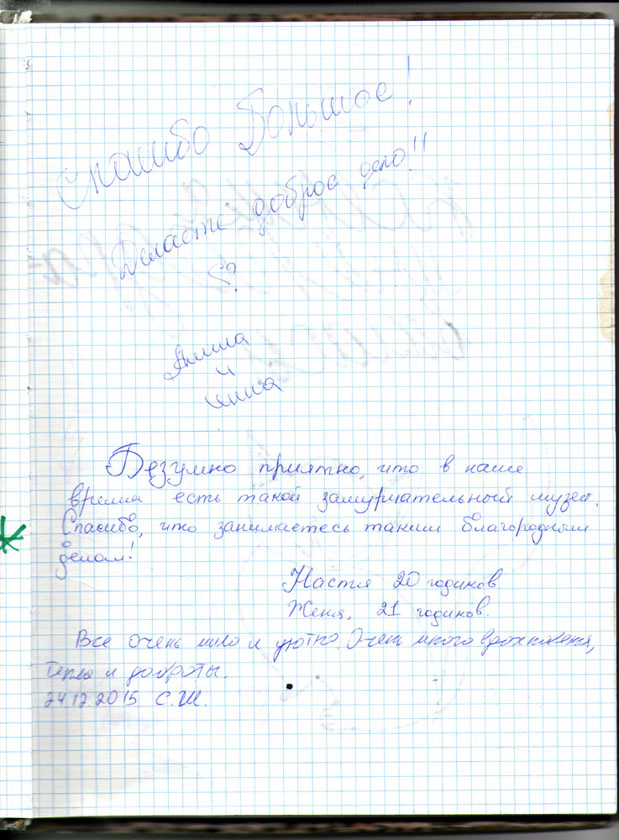 Спасибо Большое!
Делаете доброе дело!!
и
Безумно приятно, что в наше
время есть такой замурчательный музей.
Спасибо, что занимаетесь таким благородным
делом!
Настя 20 годиков
Женя, 21 годиков.
Все очень мило и уютно. Очень много вдохновения,
тепла и доброты.
24.12.2015 С.Ш.